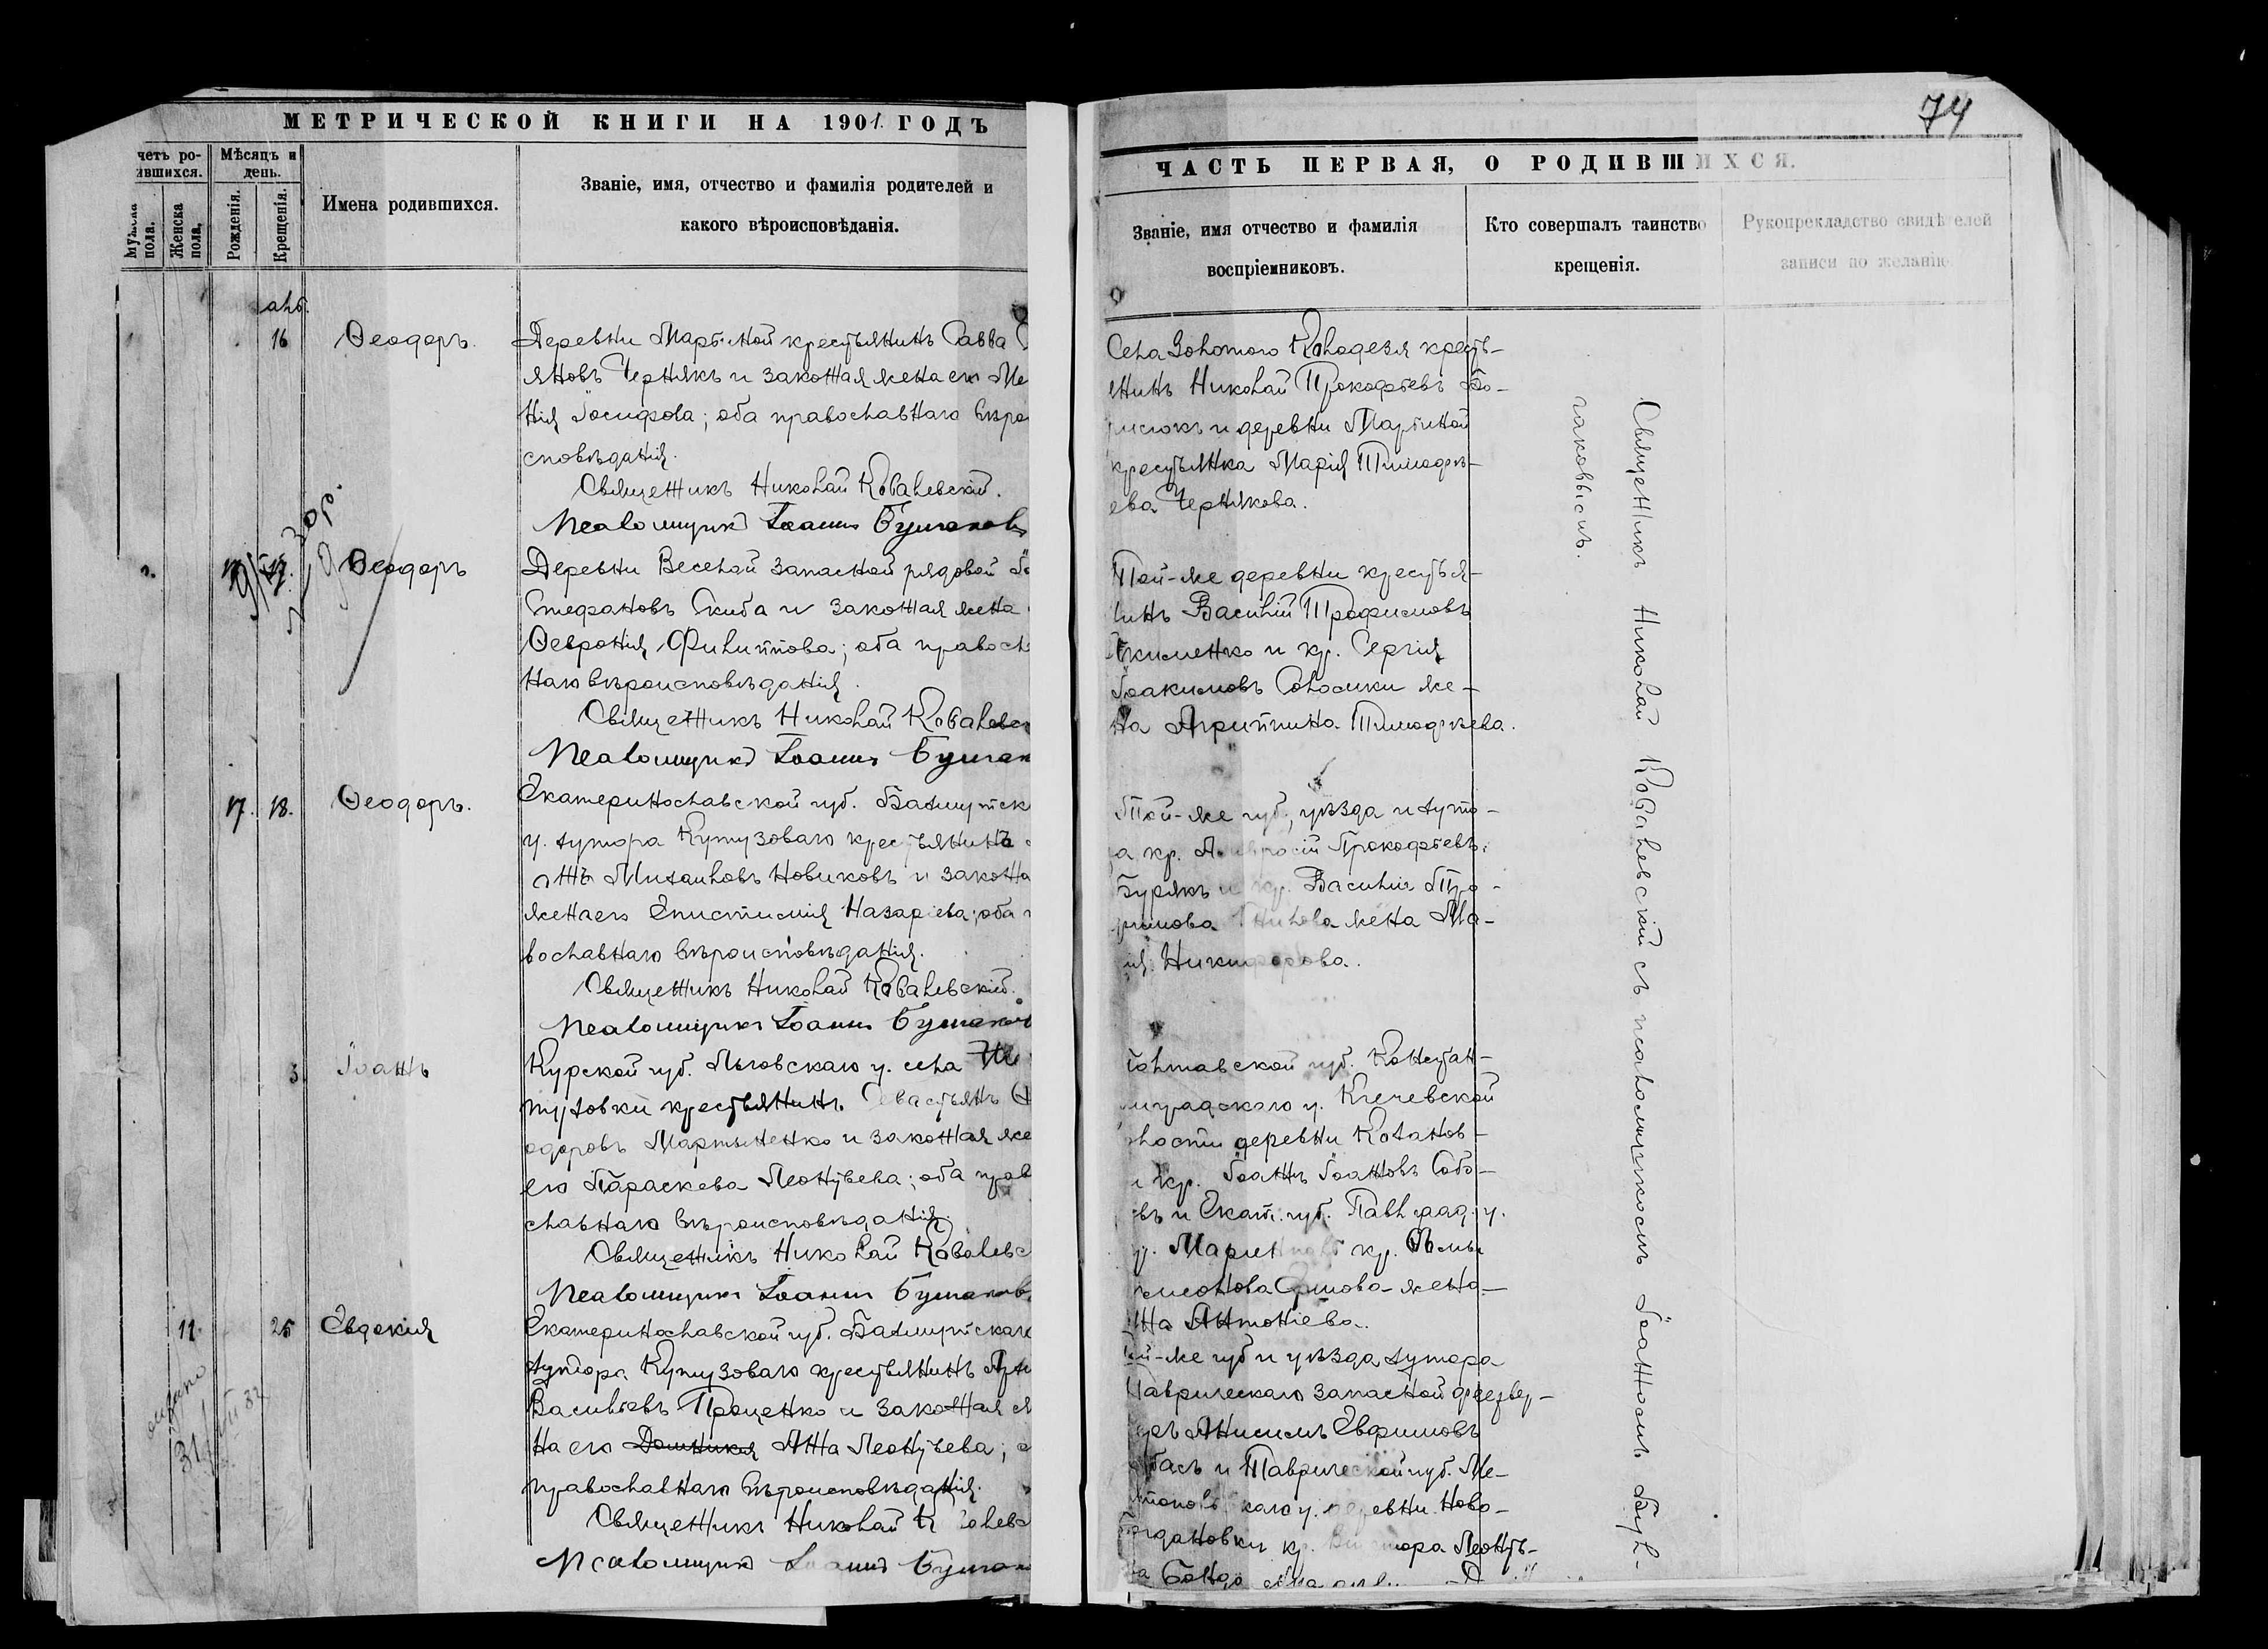 МЕТРИЧЕСКОЙ КНИГИ НА 1901. ГОДЪ
четъ ро-
ившихся.
Мѣсяцъ и
день.
Мужска
пола.
Женска
пола,
Рожденія.
Крещенія.
Имена родившихся.
Званіе, имя, отчество и фамилія родителей и
какого вѣроисповѣданія.
16
Ѳеодоръ.
Деревни Марьиной крестьянинъ Савва
яновъ Чернякъ и законная жена его Ме
нія Іосифова; оба православнаго вѣро
сповѣданія.
Священникъ Николай Ковалевскій.
Псаломщикъ Іоаннъ Бушаковъ
Ѳеодоръ
Деревни Веселой запасной рядовой
Стефановъ Скиба и законная жена
Ѳевронія Филиппова; оба правосл
наго вѣроисповѣданія.
Священникъ Николай Ковалевс
Псаломщикъ Іоаннъ Бушак
17. 18.
Ѳеодоръ.
Екатеринославской губ. Бахмутск
у. хутора Кутузоваго крестьянинъ
Михаиловъ Новиковъ и законна
жена его Епистимія Назаріева; оба
вославнаго вѣроисповѣданія.
Священникъ Николай Ковалевскій.
Псаломщикъ Іоаннъ Бушаков
3.
Іоаннъ
Курской губ. Льговскаго у. села
крестьянинъ Севастьянъ
одоровъ Мартыненко и законная же
его Параскева Леонтьева; оба прав
славнаго вѣроисповѣданія.
Священникъ Николай Ковалевс
Псаломщикъ Іоаннъ Бушаков
11. 25
Евдокія
Екатеринославской губ. Бахмутскаго
хутора Кутузоваго крестьянинъ
Васильевъ Проценко и законная ж
на его Домникія Анна Леонтьева;
православнаго вѣроисповѣданія.
Священникъ Николай К валевс
Псаломщикъ Іоаннъ Бушак
74
ЧАСТЬ ПЕРВАЯ, О РОДИВШИХСЯ.
Званіе, имя отчество и фамилія
воспріемниковъ.
Кто совершалъ таинство
крещенія.
Рукоприкладство свидѣтелей
записи по желанію.
Села Золотого Колодезя кресть-
янинъ Николай Прокофьевъ Бо-
рисюкъ и деревни Марьиной
крестьянка Марія Тимофѣ-
ева Чернякова.
Той-же деревни крестья-
нинъ Василій Трофимовъ
Якименко и кр. Сергія
Іоакимовъ Соломки же-
на Агриппина Тимофѣева.
Той-же губ., уѣзда и хуто-
ра кр. Амвросій Прокофьевъ
Бурякъ и кр. Василія Тро-
фимова жена Ма-
рія Никифорова.
Полтавской губ. Констан-
тиноградскаго у. Кегичевской
волости деревни Кохановк-
и кр. Іоаннъ Іоанновъ Собо-
въ и Екат. губ. Павлоград. у.
кр.
жена
Анна Антоніева.
Той-же губ и уѣзда хутора
Таврическаго запасной фейервер-
керъ Анисимъ Евфимовъ
и Таврической губ. Ме-
литопольскаго у. деревни Ново-
богдановки кр. Виктора Леонть-
Священникъ Николай Ковалевскій съ псаломщикомъ Іоанномъ Буш-
маковымъ.